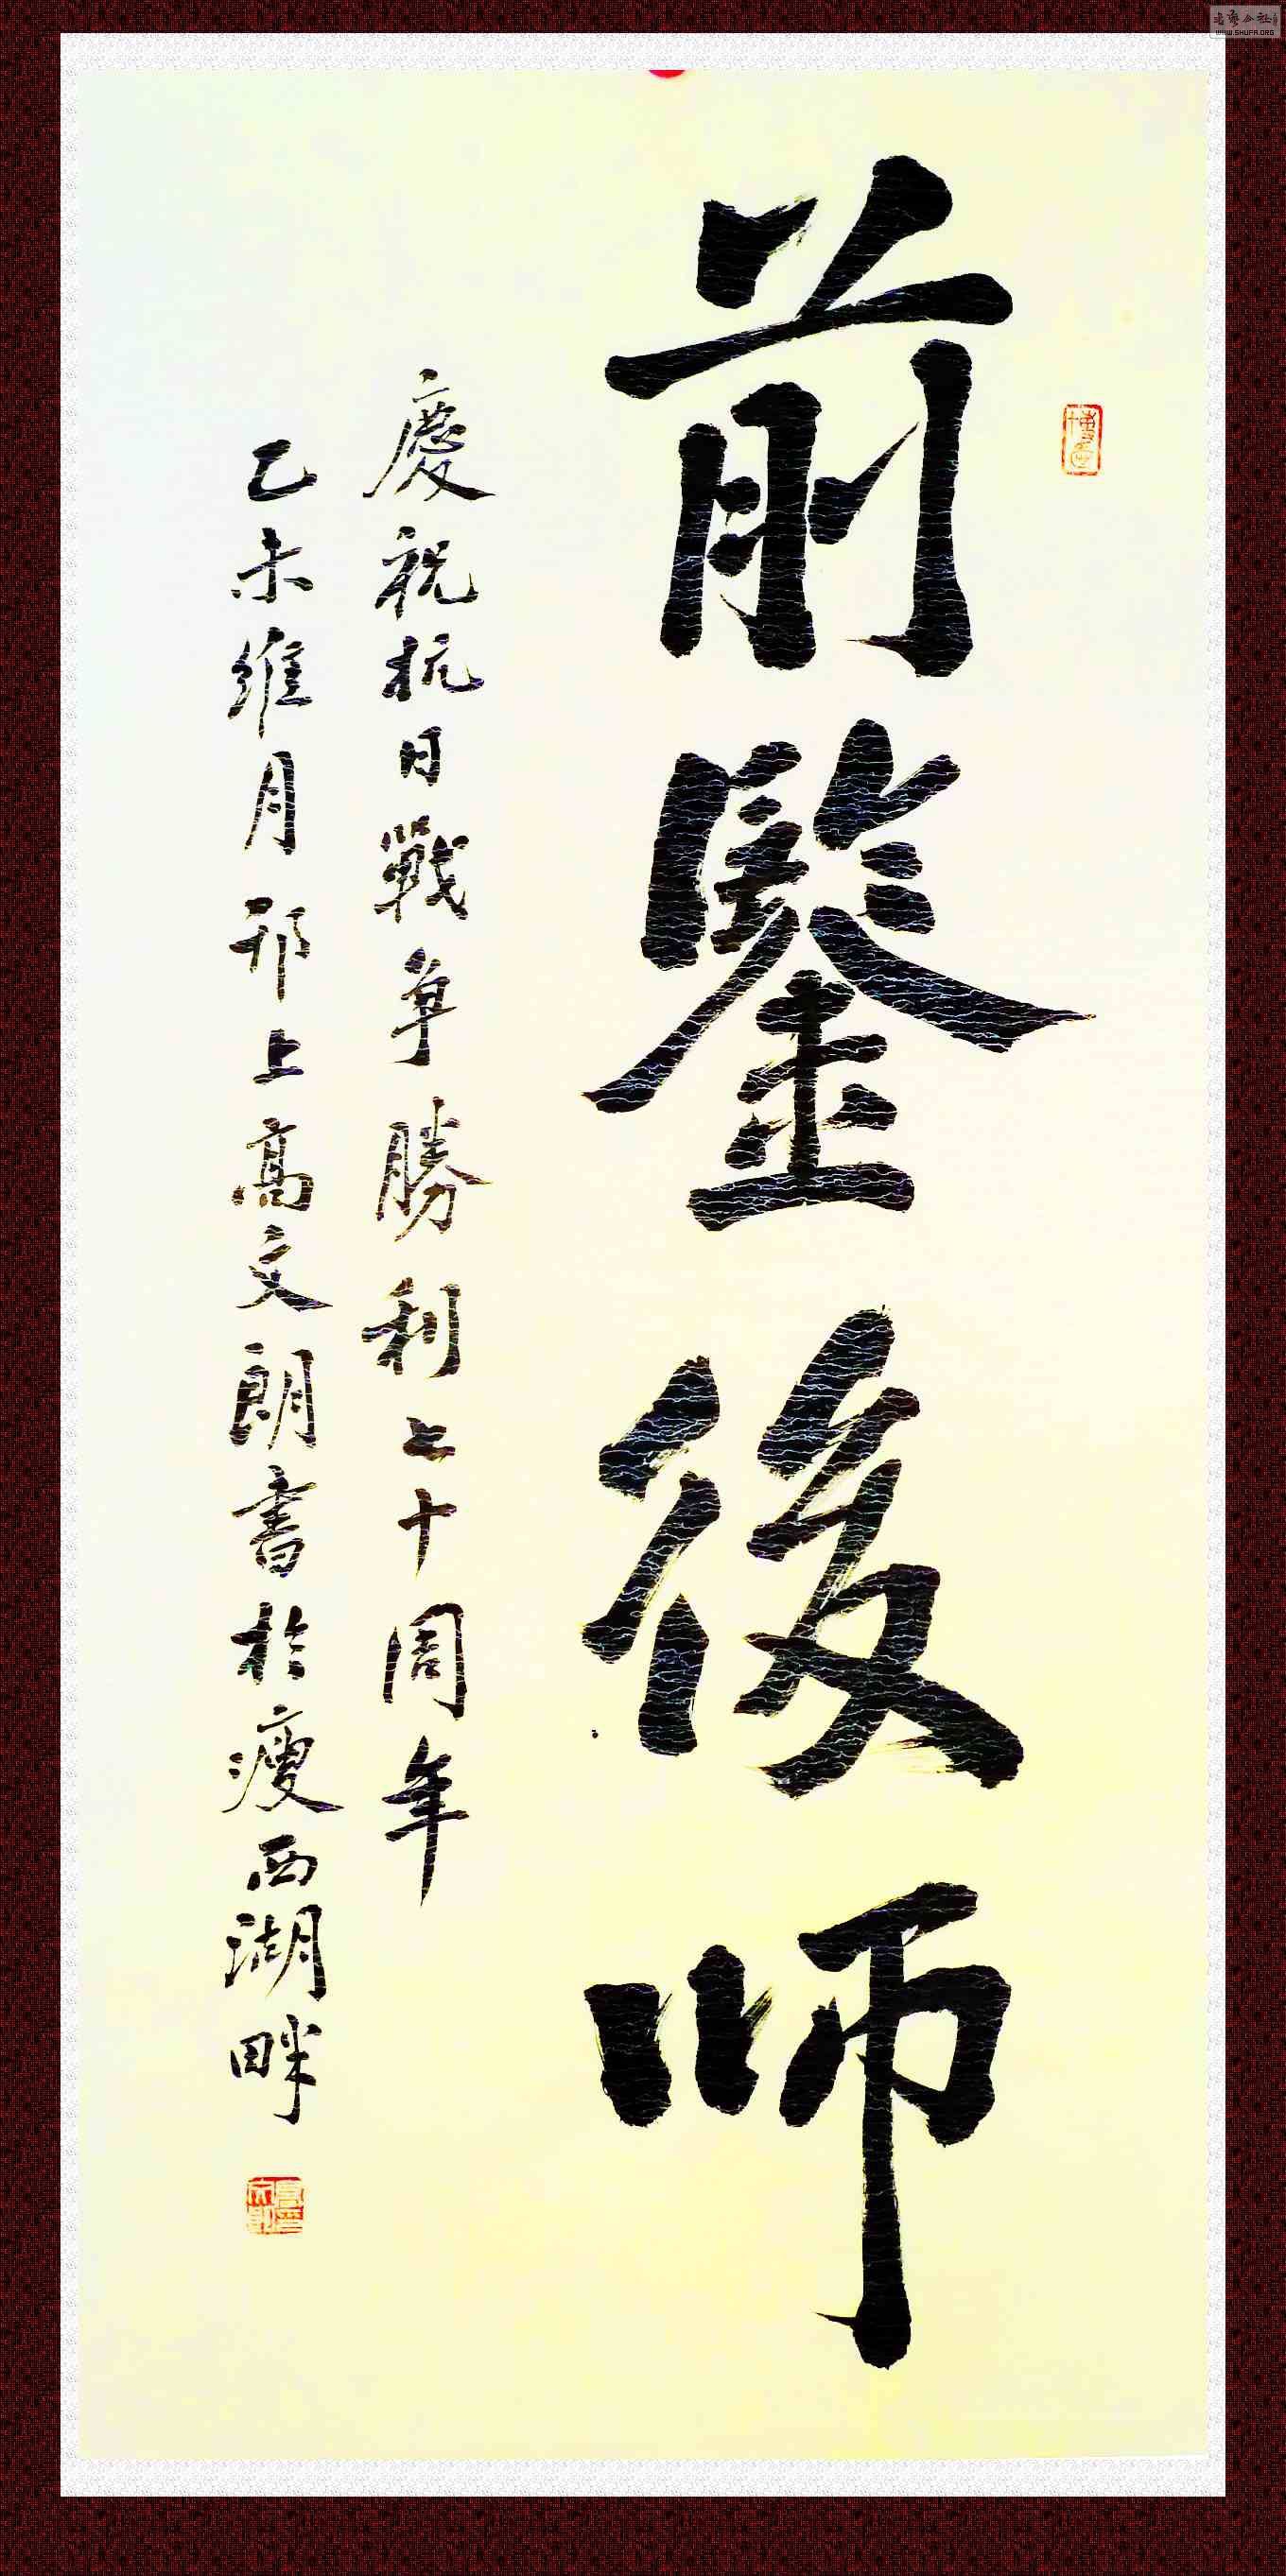 前鑒後師
慶祝抗日戰争勝利七十周年
乙未維月邗上高文朗書於瘦西湖畔
WWW.SHUFA.ORG